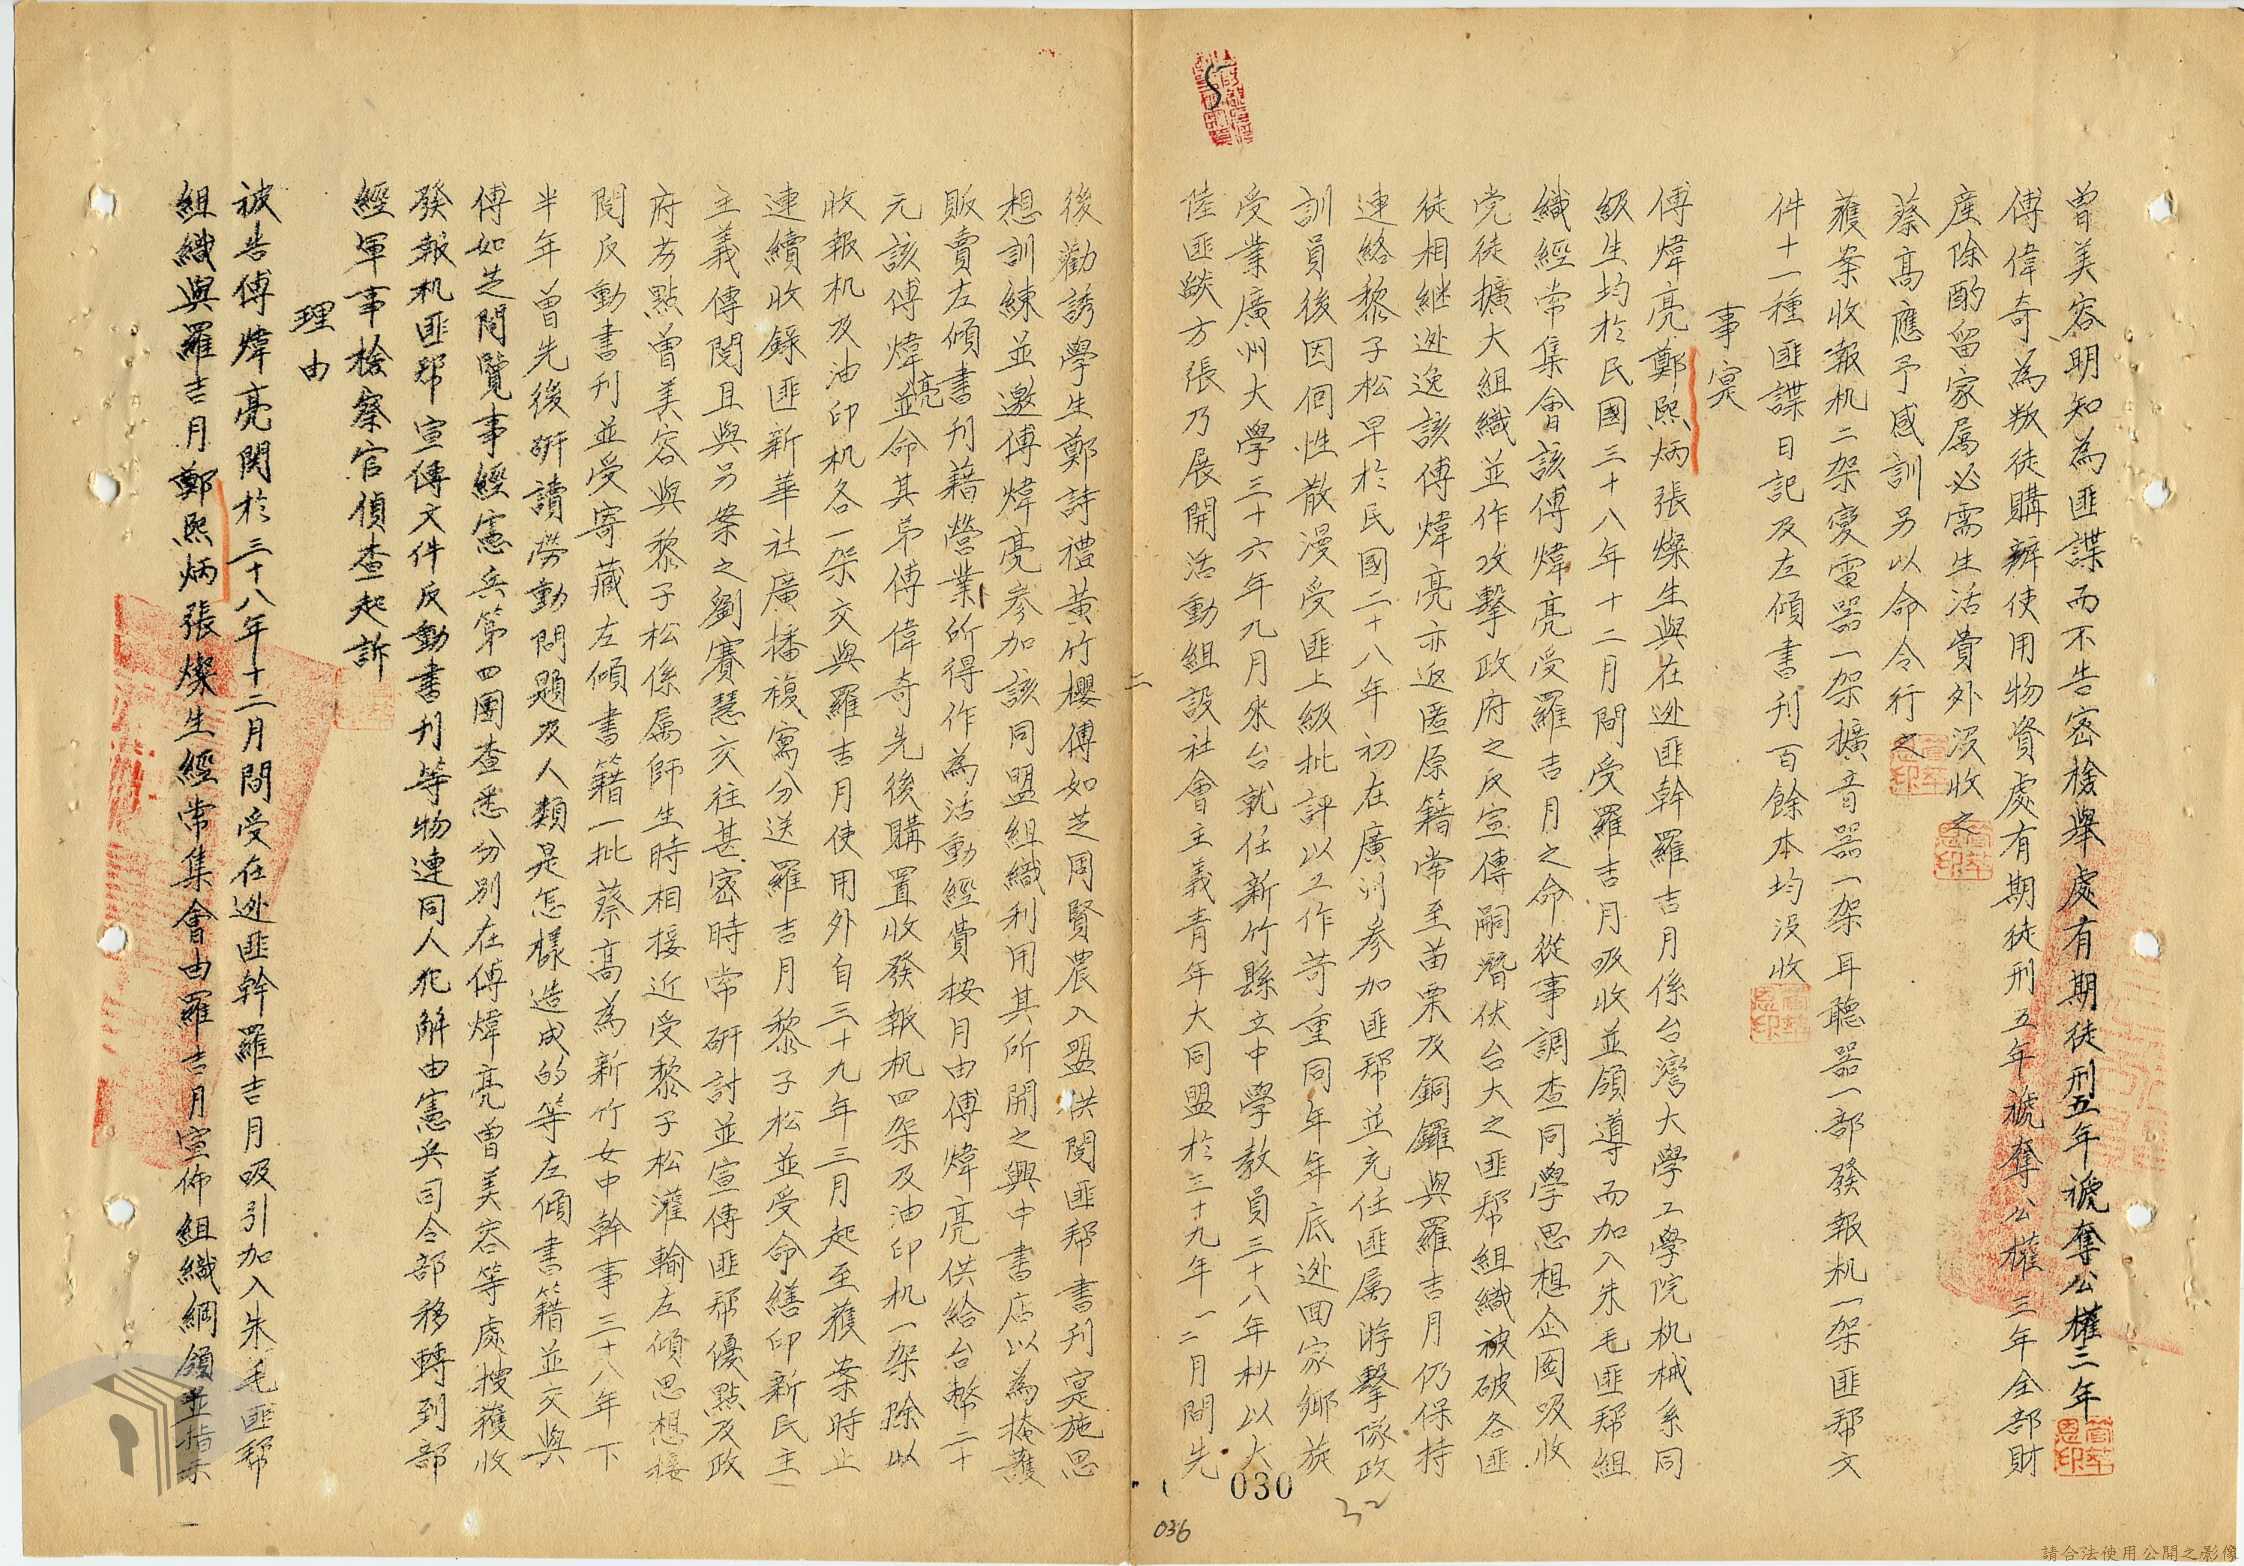 曾美容明知為匪諜而不告密檢舉處有期徒刑五年褫奪公權三年
傅偉奇為叛徒購辦使用物資處有期徒刑五年褫奪公權三年全部財
產除酌留家屬必需生活費外沒收之
蔡高應予感訓另以命令行之
獲案收報机二架變電器一架擴音器一架耳聽器一部發報机一架匪帮文
件十一種匪諜日記及左傾書刊百餘本均沒收
事実
傅煒亮鄭熙炳張燦生與在逃匪幹羅吉月係台灣大學工學院机械系同
級生均於民國三十八年十二月間受羅吉月吸收並領導而加入朱毛匪帮組
織經常集會該傅煒亮受羅吉月之命從事調查同學思想企圖吸收
党徒擴大組織並作攻擊政府之反宣傳嗣潛伏台大之匪帮組織被破各匪
徒相継逃逸該傅煒亮亦返匿原籍常至苗栗及銅鑼與羅吉月仍保持
連絡黎子松早於民國二十八年初在廣州參加匪帮並充任匪属游擊隊政
訓員後因個性散漫受匪上級批評以工作苛重同年年底逃回家鄉旋
受業廣州大學三十六年九月來台就任新竹縣立中學教員三十八年杪以大
陸匪燄方張乃展開活動組設社會主義青年大同盟於三十九年一二月間先
二
5
030
32
036
後勸誘學生鄭詩禮黃竹櫻傅如芝周賢農入盟供閱匪帮書刊寔施思
想訓練並邀傅煒亮參加該同盟組織利用其所開之興中書店以為掩護
販賣左傾書刊藉營業所得作為活動經費按月由傅煒亮供給台幣二十
元該傅煒亮並命其弟傅偉奇先後購置收發報机四架及油印机一架除以
收報机及油印机各一架交與羅吉月使用外自三十九年三月起至獲案時止
連續收錄匪新華社廣播複寫分送羅吉月黎子松並受命繕印新民主
主義傳閱且與另案之劉賽慧交往甚密時常研討並宣傳匪帮優點及政
府劣點曾美容與黎子松係属師生時相接近受黎子松灌輸左傾思想接
閱反動書刊並受寄藏左傾書籍一批蔡高為新竹女中幹事三十八年下
半年曾先後研讀勞動問題及人類是怎樣造成的等左傾書籍並交與
傅如芝閱覽事經憲兵第四團查悉分別在傅煒亮曾美容等處搜獲收
發報机匪帮宣傳文件反動書刊等物連同人犯解由憲兵司令部移轉到部
經軍事檢察官偵查起訴
理由
被告傅煒亮関於三十八年十二月間受在逃匪幹羅吉月吸引加入朱毛匪帮
組織與羅吉月鄭熙炳張燦生經常集會由羅吉月宣佈組織綱領並指示
請合法使用公開之影像